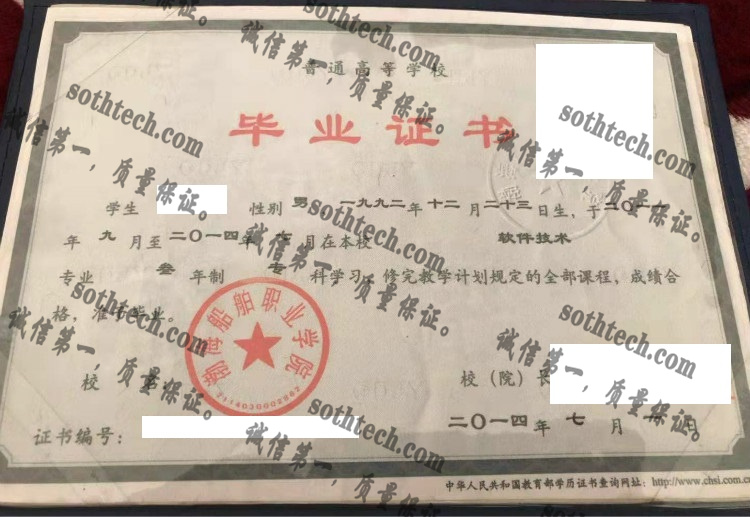 普通高等学校
毕业证书
学生 性别 男 一九九二年 十二月 二十三日生，于 二〇一一
年 九 月至 二〇一四年 月在本校 软件技术
专业 叁 年制 专 科学习，修完教学计划规定的全部课程，成绩合
格，准予毕业。
渤海船舶职业学院
2114030002862
校 校（院）长
二〇一四 年 七 月 日
证书编号：
中华人民共和国教育部学历证书查询网址：http://www.chsi.com.cn
sothtech.com
诚信第一，质量保证。
sothtech.com
诚信第一，质量保证。
sothtech.com
诚信第一，质量保证。
sothtech.com
诚信第一，质量保证。
sothtech.com
诚信第一，质量保证。
sothtech.com
诚信第一，质量保证。
sothtech.com
诚信第一，质量保证。